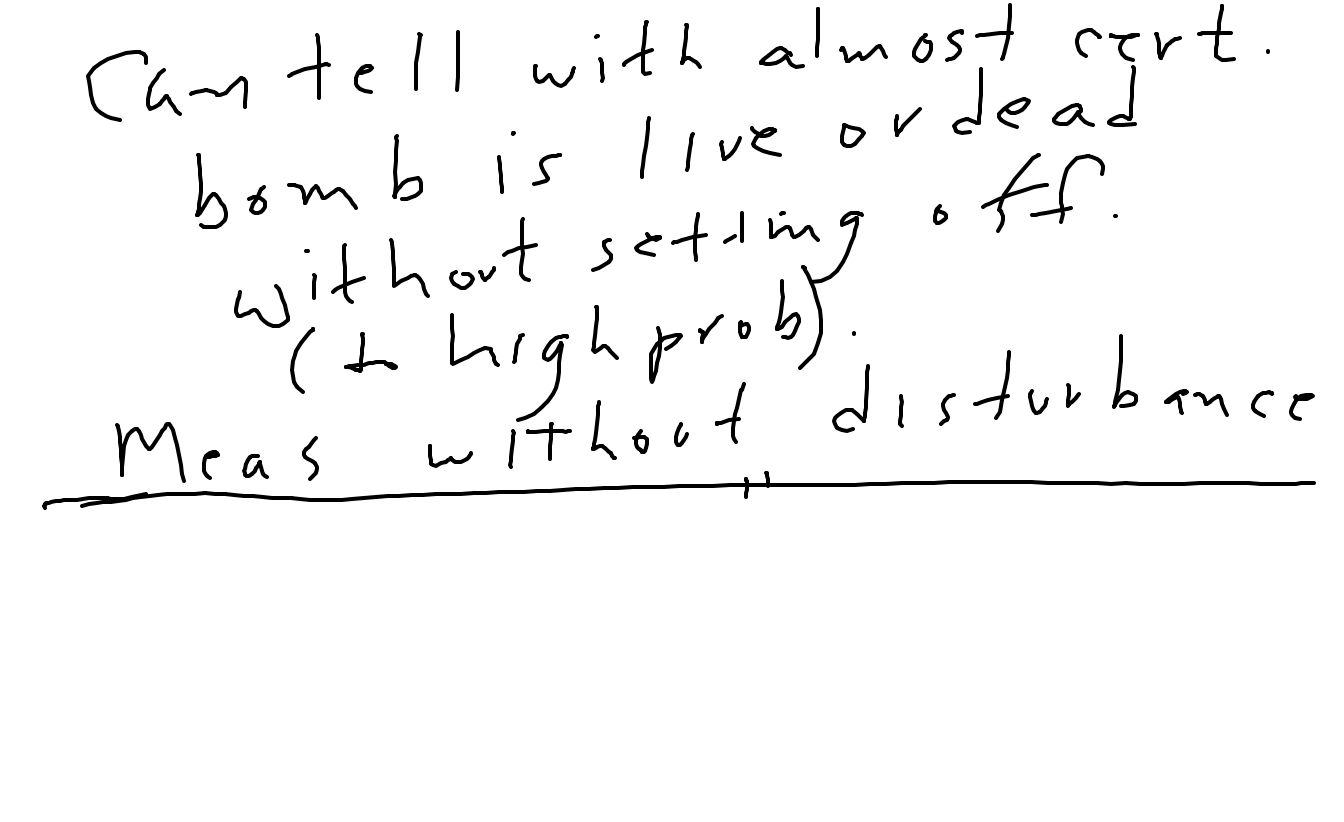 Can tell with almost cert.
bomb is live or dead
without setting off.
(to high prob).
Meas without disturbance